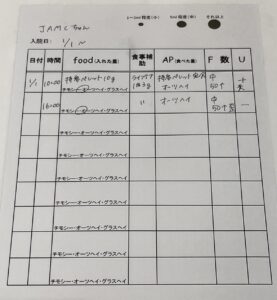 JAMCちゃん
1~2mm程度(小) 5mm程度(中) それ以上
入院日: 1/1 ~
日付 時間 food(入れた量) 食事補助 AP(食べた量) F 数 U
1/1 10:00 持参ペレット10g ライフケア 持参ペレット 中 50↑ +
チモシー・オーツヘイ・グラスヘイ オーツヘイ
16:00 〃 オーツヘイ 中 50↑ —
チモシー・オーツヘイ・グラスヘイ
チモシー・オーツヘイ・グラスヘイ
チモシー・オーツヘイ・グラスヘイ
チモシー・オーツヘイ・グラスヘイ
チモシー・オーツヘイ・グラスヘイ
チモシー・オーツヘイ・グラスヘイ